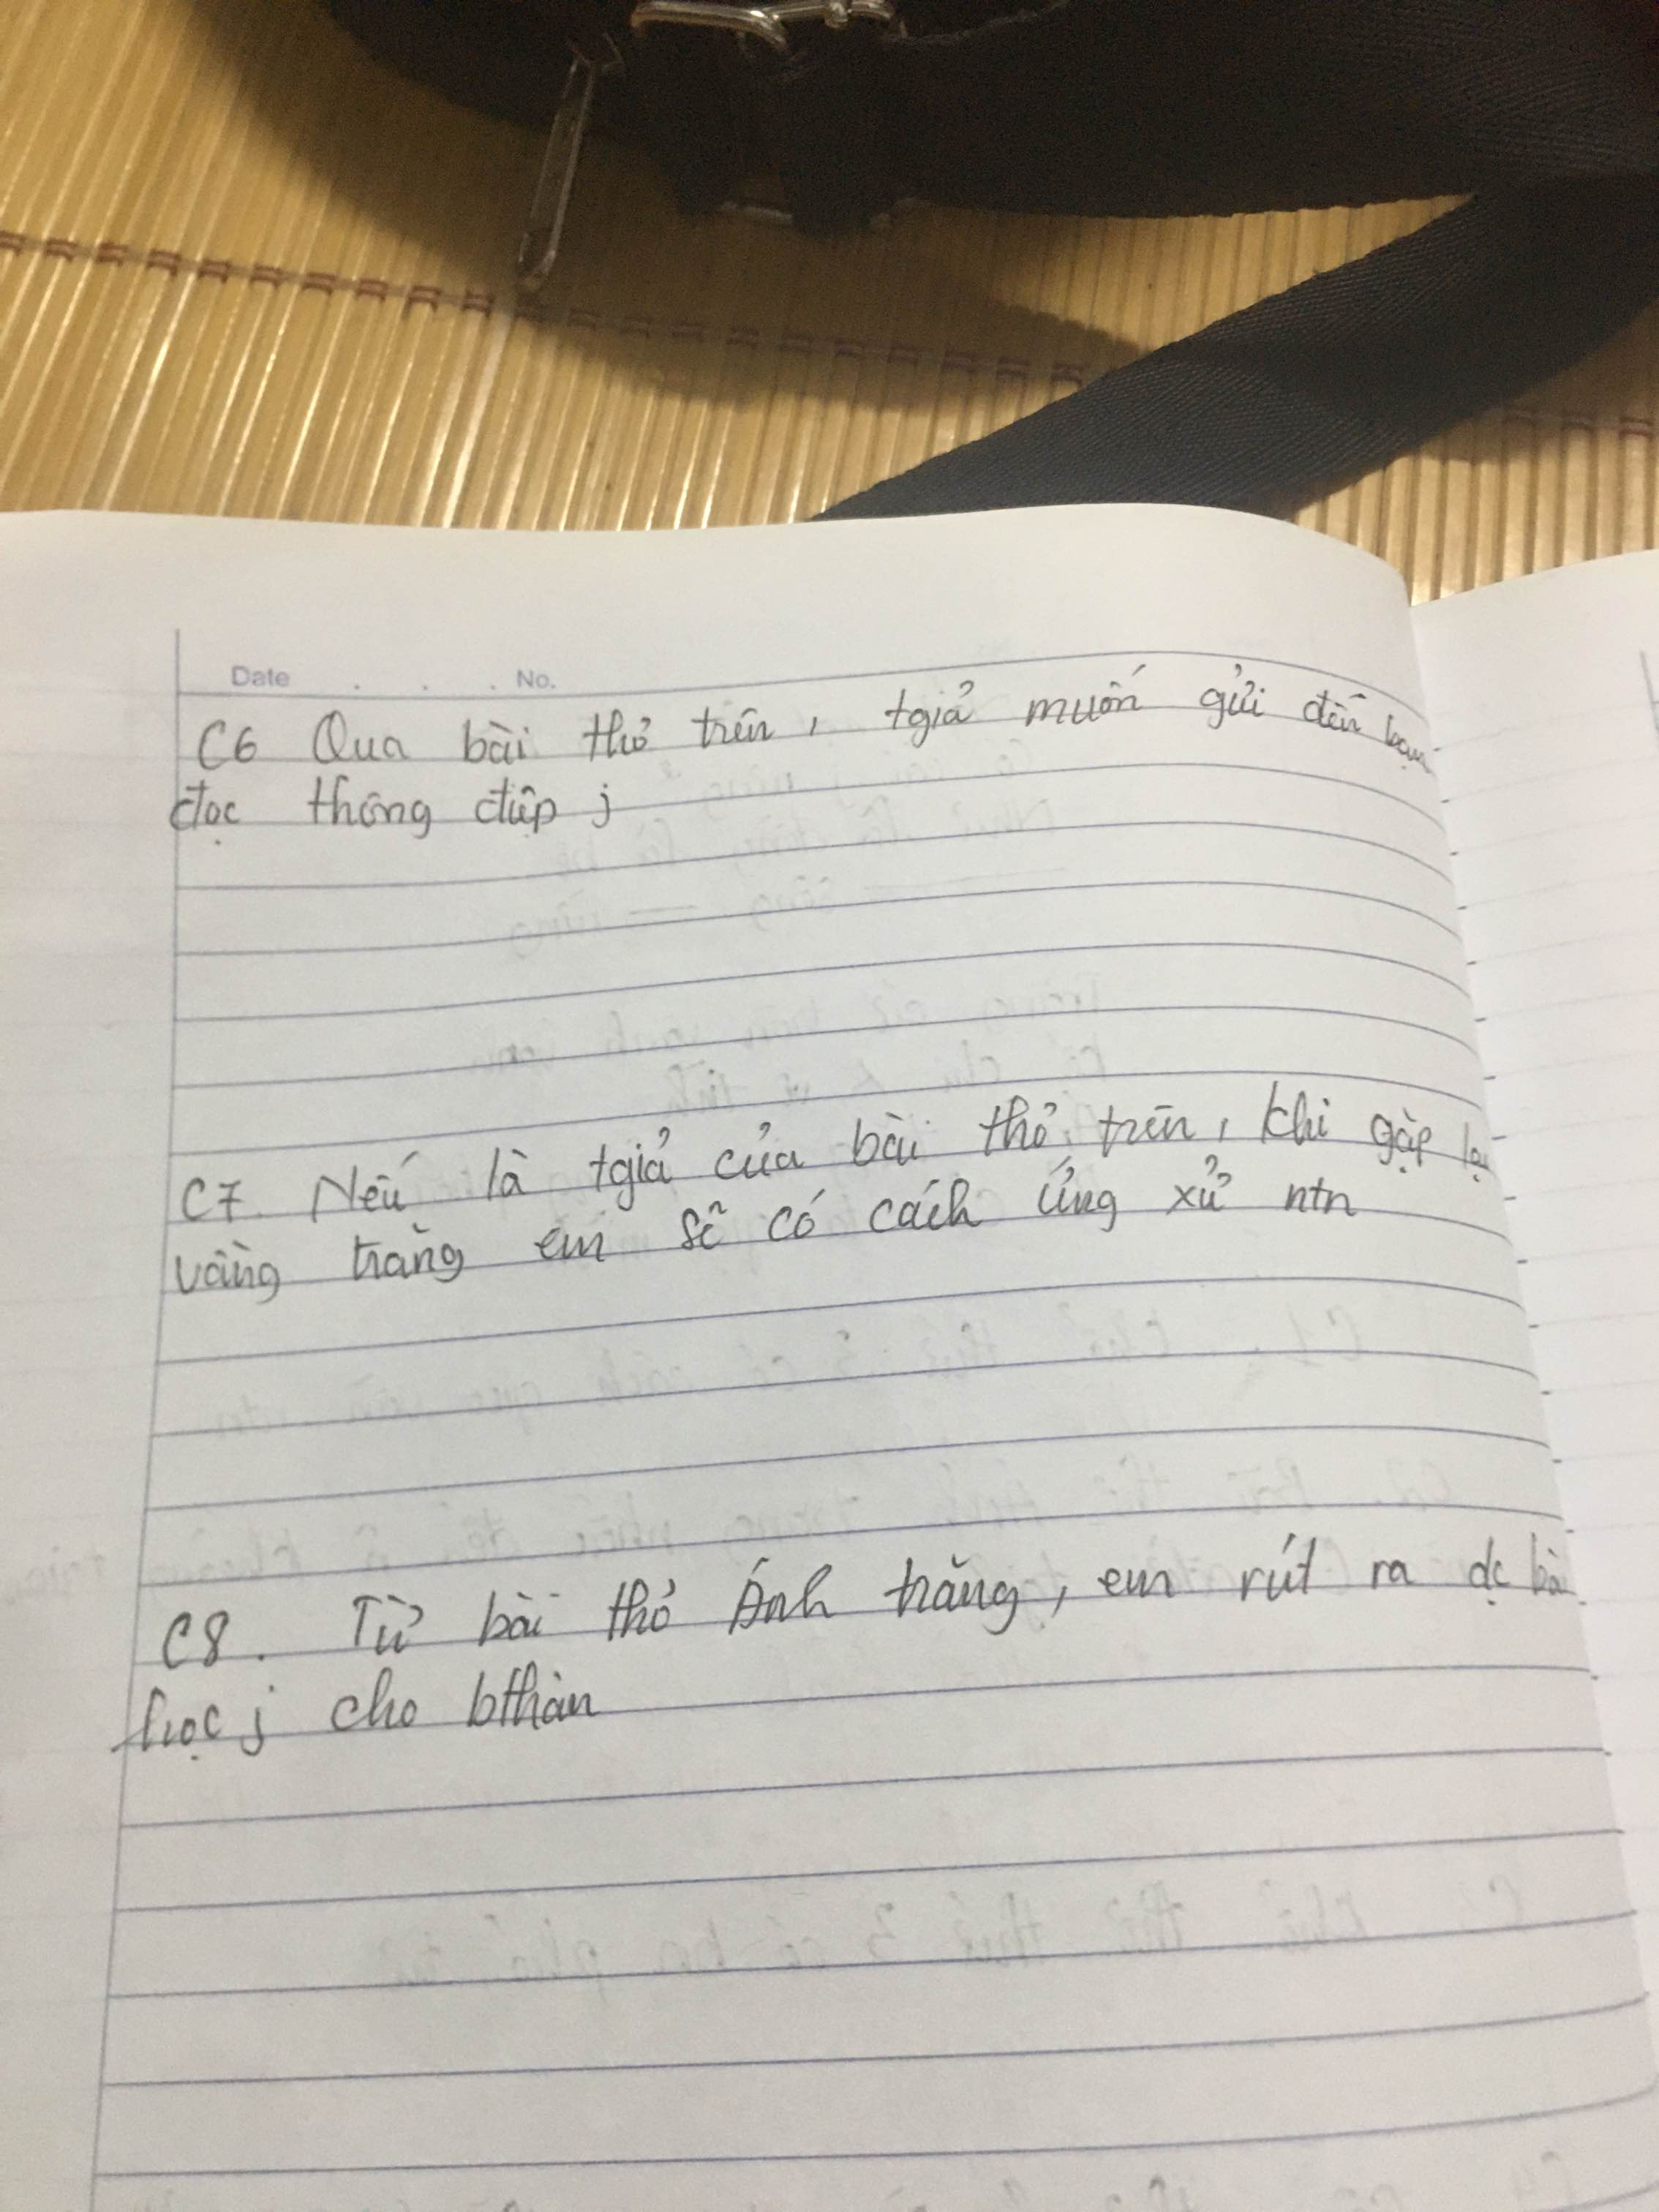 Date . . . No.
C6 Qua bài thơ trên, tgiả muốn gửi đến bạn
đọc thông điệp j
C7. Nếu là tgiả của bài thơ trên, khi gặp lại
vầng trăng em sẽ có cách ứng xử ntn
C8. Từ bài thơ Ánh trăng, em rút ra dc bài
học j cho bthân